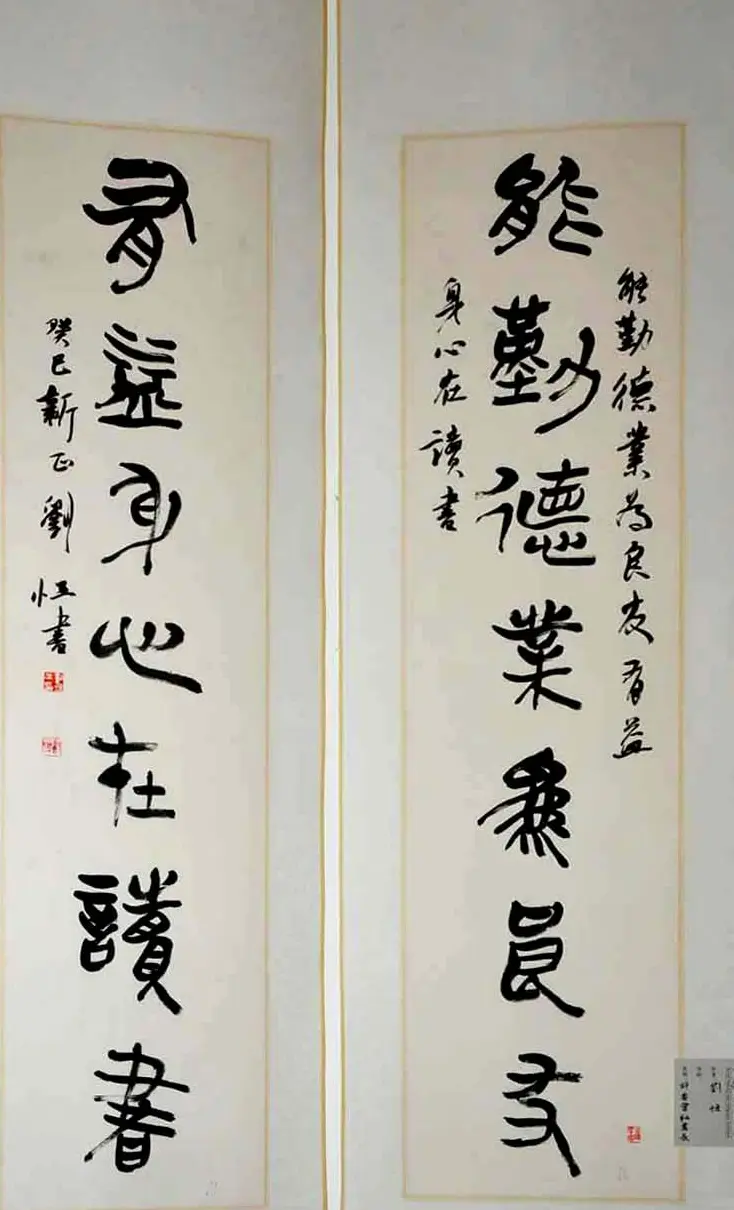 能勤德業為良友
能勤德業為良友有益
身心在讀書
有益身心在讀書
癸巳新正劉恒書
劉恒